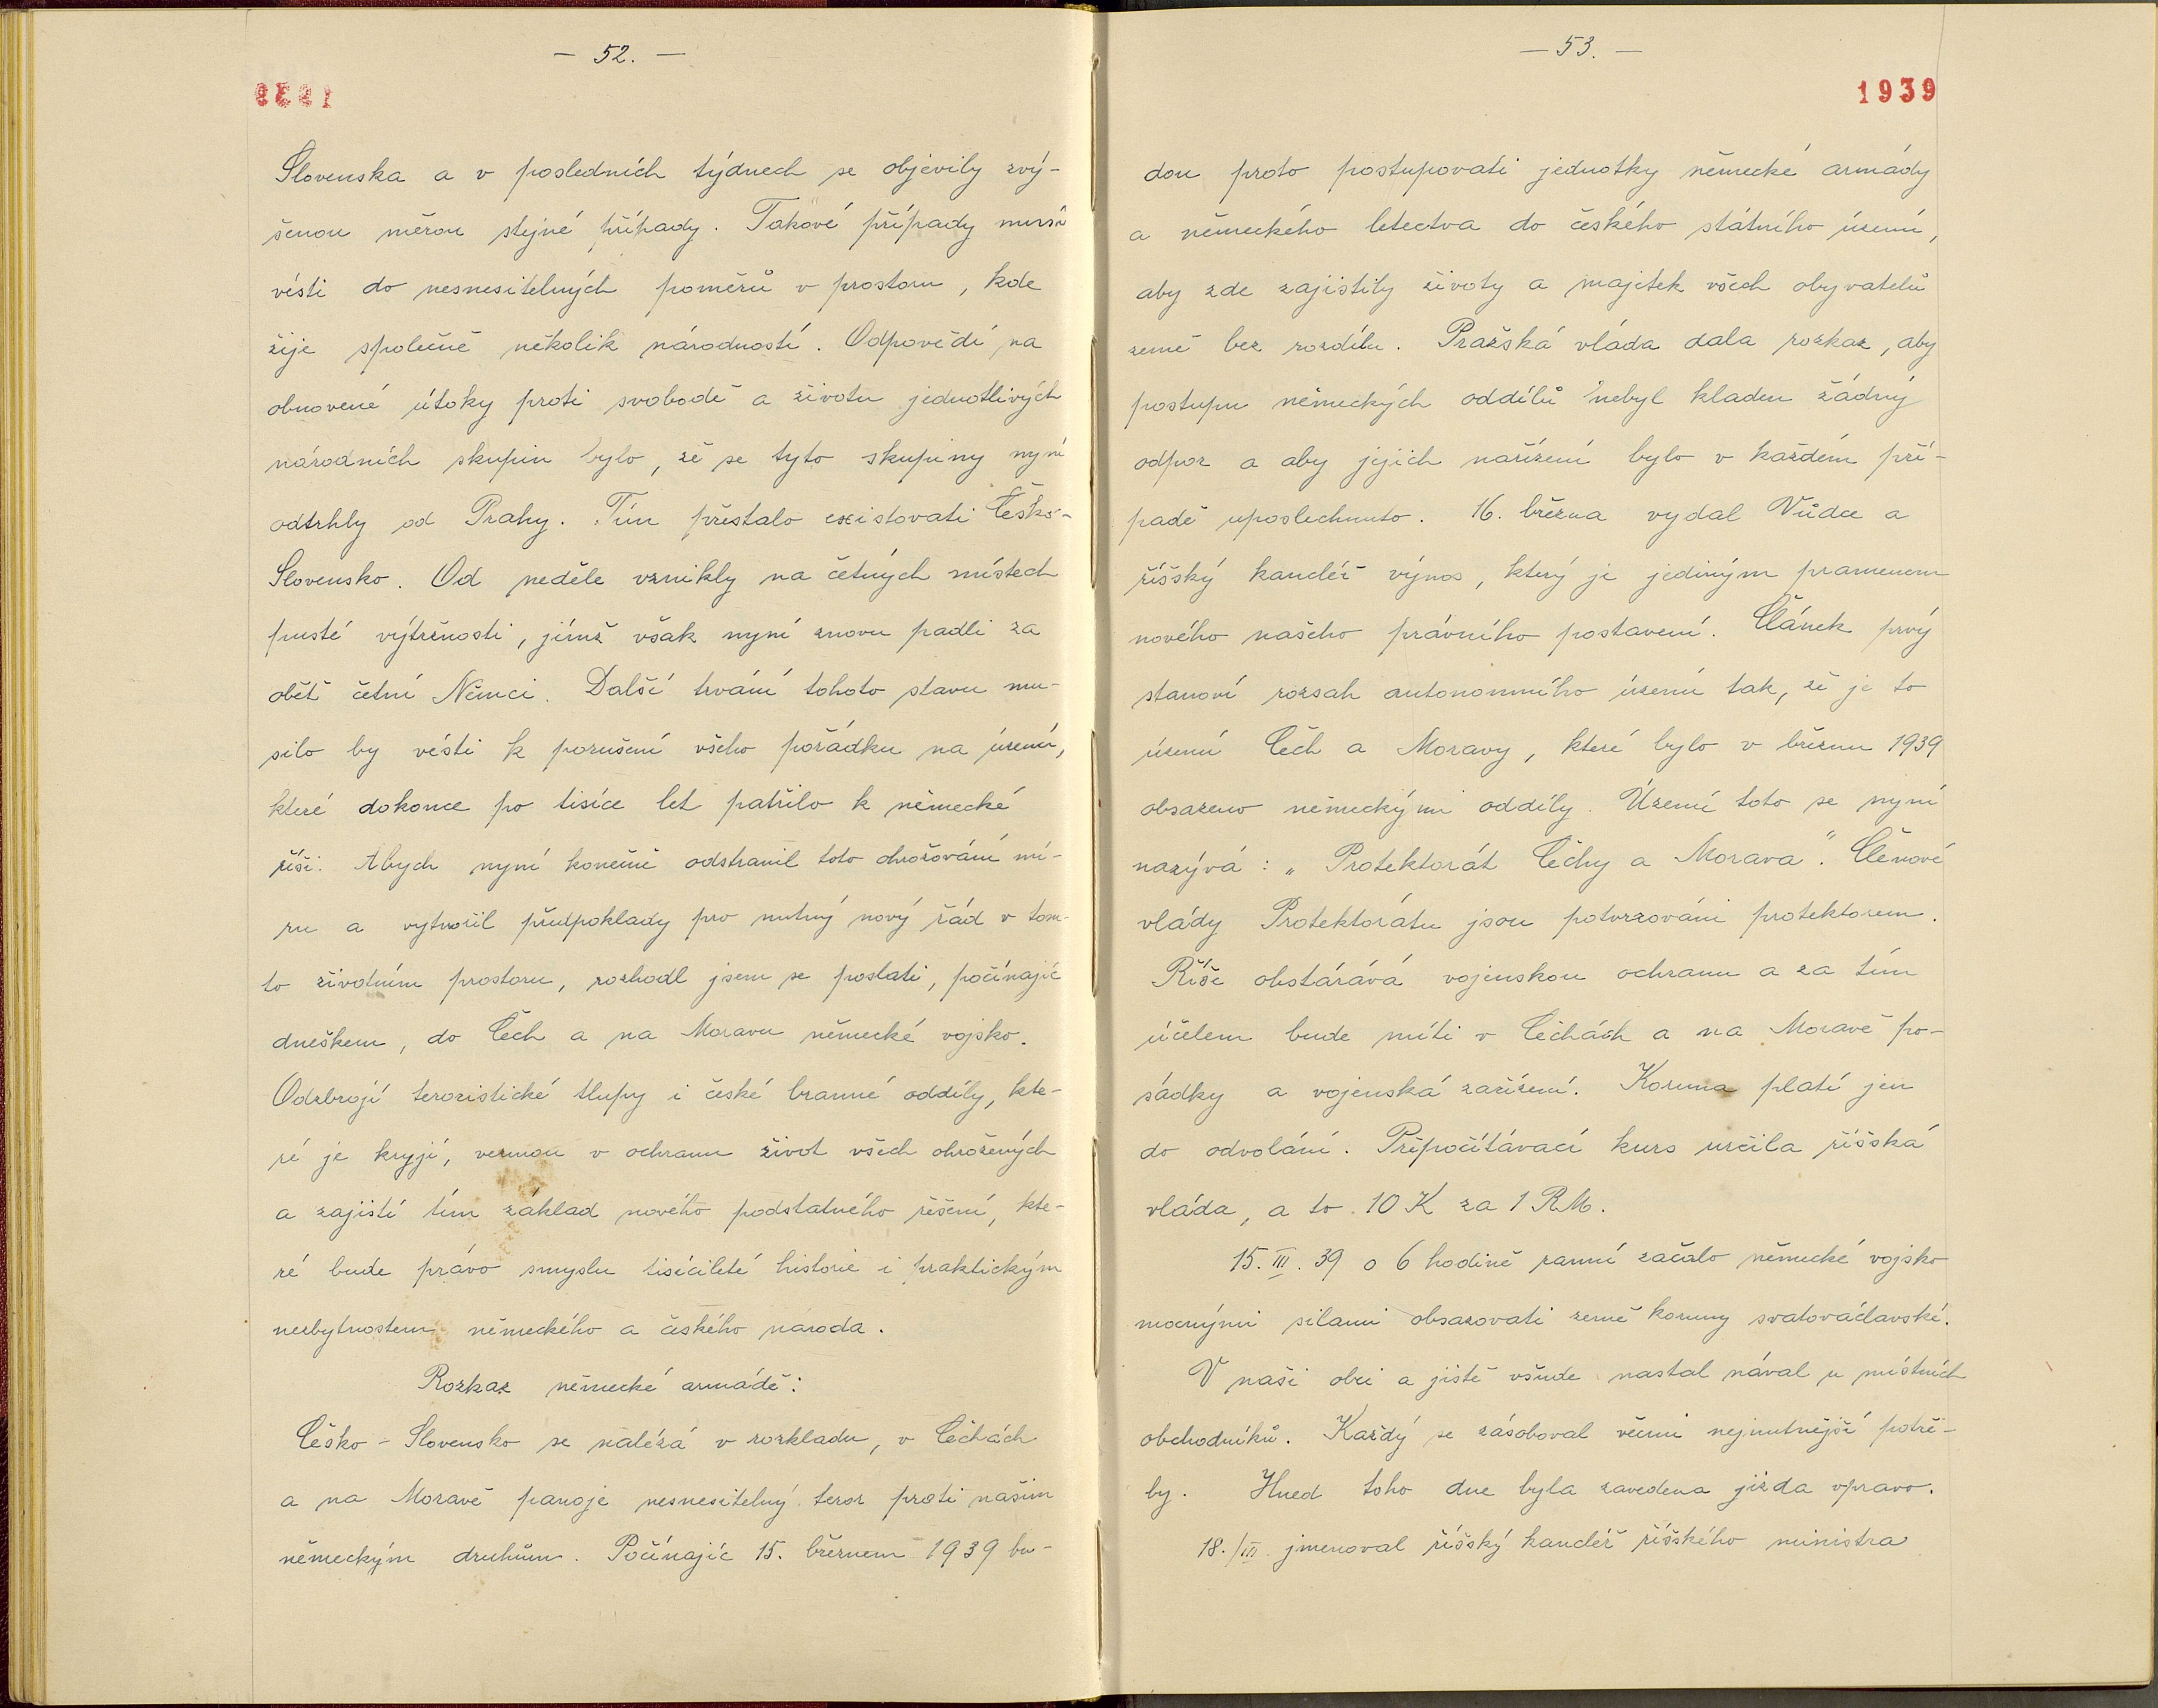 — 52. —
Slovenska a v posledních týdnech se objevily zvý-
šenou měrou stejné případy. Takové případy musí
vésti do nesnesitelných poměrů v prostoru, kde
žije společně několik národností. Odpovědí na
obnovené útoky proti svobodě a životu jednotlivých
národních skupin bylo, že se tyto skupiny nyní
odtrhly od Prahy. Tím přestalo existovati Česko-
Slovensko. Od neděle vznikly na četných místech
pusté výtržnosti, jímž však nyní znovu padli za
obět četní Němci. Další trvání tohoto stavu mu-
silo by vésti k porušení všeho pořádku na území,
které dokonce po tisíce let patřilo k německé
říši. Abych nyní konečně odstranil toto ohrožování mí-
ru a vytvořil předpoklady pro nutný nový řád v tom-
to životním prostoru, rozhodl jsem se poslati, počínajíc
dneškem, do Čech a na Moravu německé vojsko.
Odzbrojí teroristické tlupy i české branné oddíly, kte-
ré je kryjí, vezmou v ochranu život všech ohrožených
a zajistí tím základ nového podstatného řešení, kte-
ré bude právo smyslu tisícileté historie i praktickým
nezbytnostem německého a českého národa.
Rozkaz německé armádě:
Česko-Slovensko se nalézá v rozkladu, v Čechách
a na Moravě panoje nesnesitelný teror proti našim
německým druhům. Počínajíc 15. březnem 1939 bu-
— 53. —
1939
dou proto postupovati jednotky německé armády
a německého letectva do českého státního území,
aby zde zajistily životy a majetek všech obyvatelů
země bez rozdílu. Pražská vláda dala rozkaz, aby
postupu německých oddílů nebyl kladen žádný
odpor a aby jejich nařízení bylo v každém pří-
padě uposlechnuto. 16. března vydal Vůdce a
říšský kancléř výnos, který je jediným pramenem
nového našeho právního postavení. Článek prvý
stanoví rozsah autonomního území tak, že je to
území Čech a Moravy, které bylo v březnu 1939
obsazeno německými oddíly. Území toto se nyní
nazývá: „Protektorát Čechy a Morava". Členové
vlády Protektorátu jsou potvrzováni protektorem.
Říše obstárává vojenskou ochranu a za tím
účelem bude míti v Čechách a na Moravě po-
sádky a vojenská zařízení. Koruna platí jen
do odvolání. Připočítávací kurs určila říšská
vláda, a to 10 K za 1 RM.
15. III. 39 o 6 hodině ranní začalo německé vojsko
mocnými silami obsazovati země koruny svatováclavské.
V naši obci a jistě všude nastal nával u místních
obchodníků. Každý se zásoboval věcmi nejnutnější potře-
by. Hned toho dne byla zavedena jízda vpravo.
18./III. jmenoval říšský kancléř říšského ministra